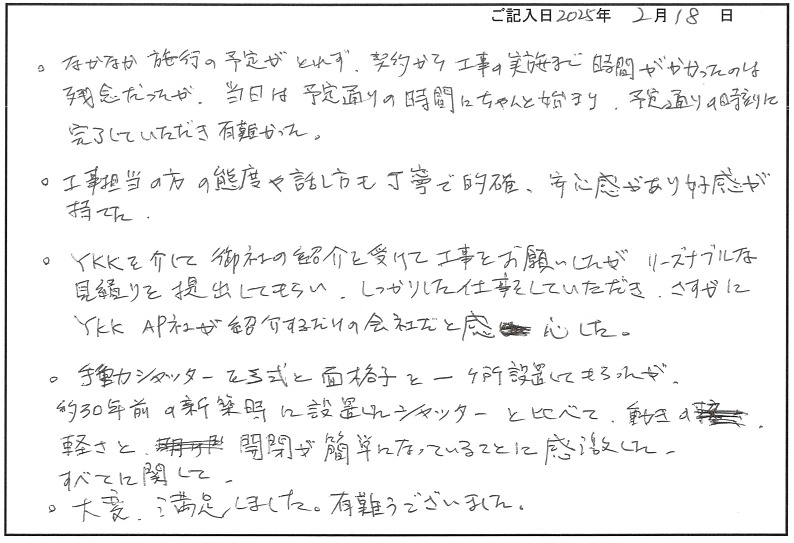 ご記入日2025年 2月18日
。なかなか施行の予定がとれず、契約から工事の実施まで時間がかかったのは
残念だったが、当日は予定通りの時間にちゃんと始まり、予定通りの時刻に
完了していただき有難かった。
。工事担当の方の態度や話し方も丁寧で的確、安心感があり好感が
持てた。
。YKKを介して御社の紹介を受けて工事をお願いしたが リーズナブルな
見積りを提出してもらい、しっかりした仕事をしていただき、さすがに
YKK AP社が紹介するだけの会社だと感心した。
。手動シャッターを三式と面格子を一ヶ所設置してもらったが、
約30年前の新築時に設置したシャッターと比べて、動きの
軽さと、開閉が簡単になっていることに感激した。
すべてに関して、
。大変、満足しました。有難うございました。